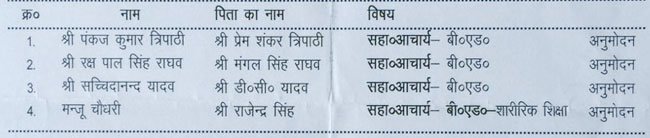 क्र० नाम पिता का नाम विषय
1. श्री पंकज कुमार त्रिपाठी श्री प्रेम शंकर त्रिपाठी सहा०आचार्य– बी०एड० अनुमोदन
2. श्री रक्ष पाल सिंह राघव श्री मंगल सिंह राघव सहा०आचार्य– बी०एड० अनुमोदन
3. श्री सच्चिदानन्द यादव श्री डी०सी० यादव सहा०आचार्य– बी०एड० अनुमोदन
4. मन्जू चौधरी श्री राजेन्द्र सिंह सहा०आचार्य– बी०एड०–शारीरिक शिक्षा अनुमोदन